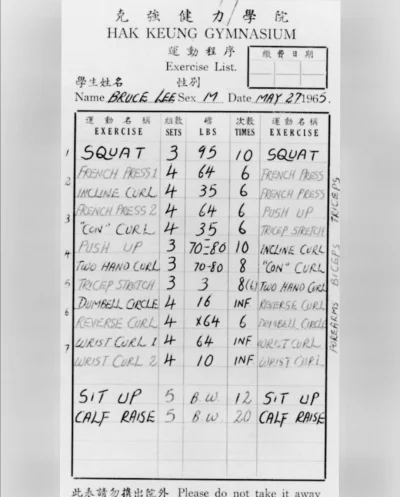 克強健力學院
HAK KEUNG GYMNASIUM
運動程序
Exercise List.
繳費日期
學生姓名 性別
Name BRUCE LEE Sex M Date MAY 27 1965.
運動名稱 組數 磅 次數 運動名稱
EXERCISE SETS LBS TIMES EXERCISE
1 SQUAT 3 95 10 SQUAT
2 FRENCH PRESS 1 4 64 6 FRENCH PRESS
INCLINE CURL 4 35 6 FRENCH PRESS
3 FRENCH PRESS 2 4 64 6 PUSH UP
"CON" CURL 4 35 6 TRICEP STRETCH
4 PUSH UP 3 70-80 10 INCLINE CURL
TWO HAND CURL 3 70-80 8 "CON" CURL
5 TRICEP STRETCH 3 3 8(6) TWO HAND CURL
DUMBELL CIRCLE 4 16 INF REVERSE CURL
6 REVERSE CURL 4 X64 6 DUMBELL CIRCLE
7 WRIST CURL 1 4 64 INF WRIST CURL
WRIST CURL 2 4 10 INF WRIST CURL
SIT UP 5 B.W. 12 SIT UP
CALF RAISE 5 B.W. 20 CALF RAISE
FOREARMS BICEPS TRICEPS
此表請勿攜出院外 Please do not take it away